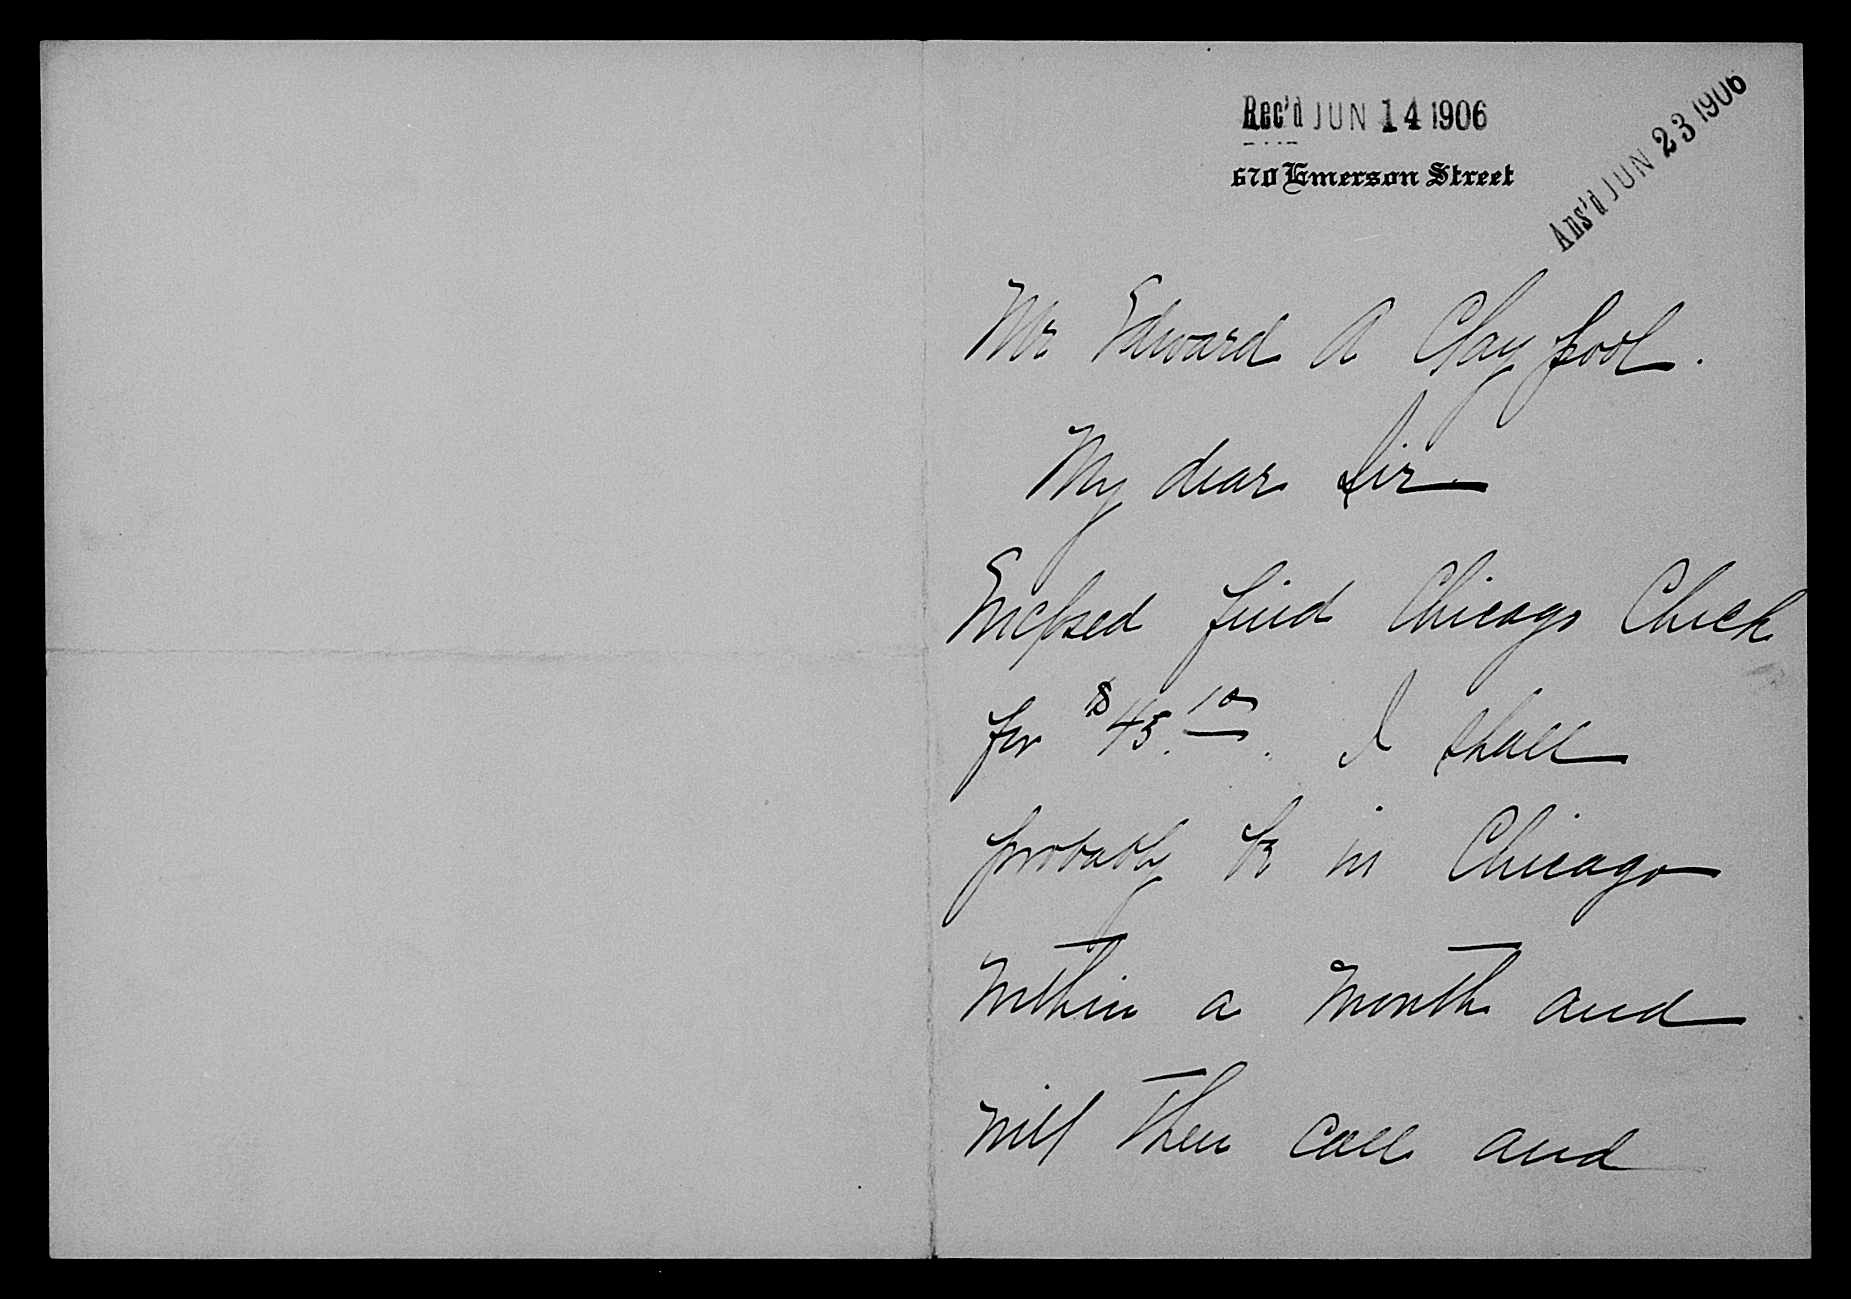 Rec'd JUN 14 1906
Ans'd JUN 23 1906
670 Emerson Street
Mr Edward A Claypool.
My dear Sir
Enclosed find Chicago Check
for $45.10. I shall
probably be in Chicago
within a month and
will then call and